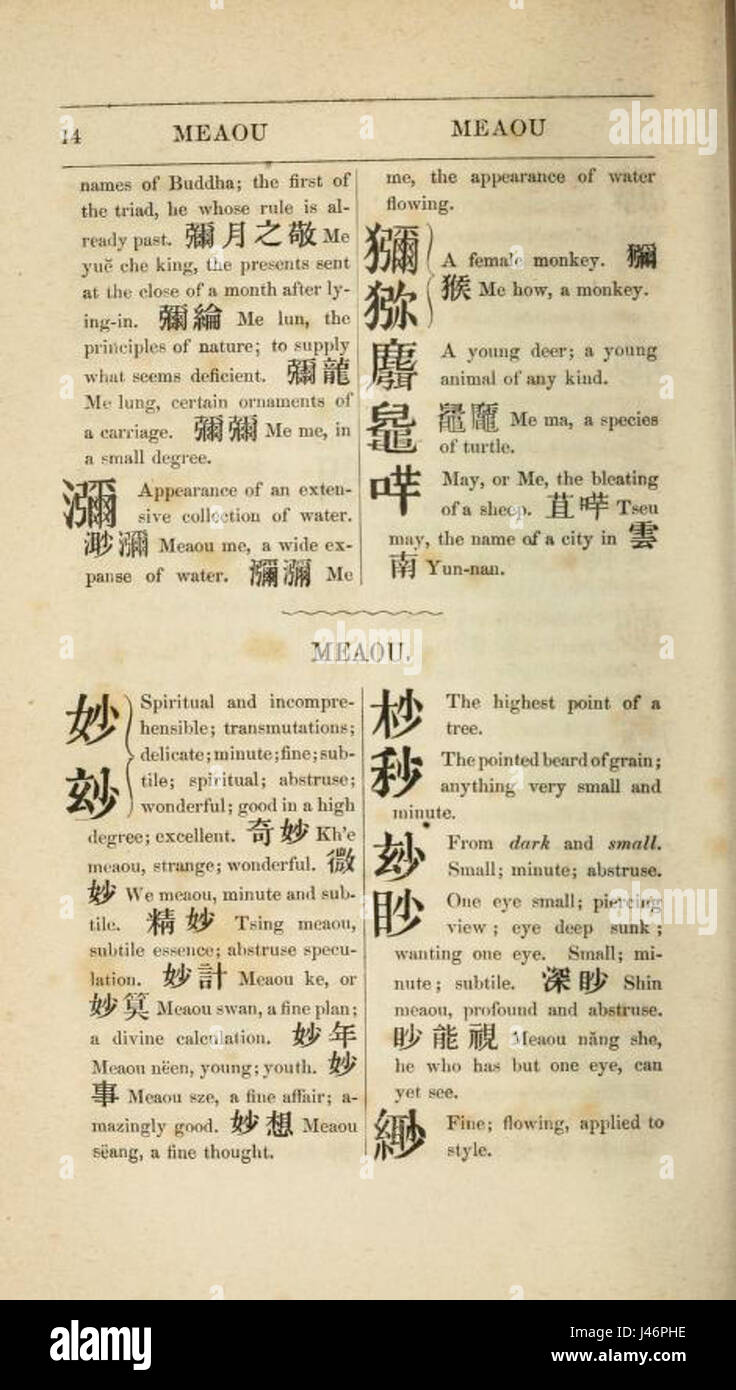 14 MEAOU MEAOU
names of Buddha; the first of
the triad, he whose rule is al-
ready past. 彌月之敬 Me
yuĕ che king, the presents sent
at the close of a month after ly-
ing-in. 彌綸 Me lun, the
principles of nature; to supply
what seems deficient. 彌龍
Me lung, certain ornaments of
a carriage. 彌彌 Me me, in
a small degree.
瀰 Appearance of an exten-
sive collection of water.
渺瀰 Meaou me, a wide ex-
panse of water. 瀰瀰 Me
me, the appearance of water
flowing.
獼
A female monkey. 獼
猕 猴 Me how, a monkey.
麛 A young deer; a young
animal of any kind.
Me ma, a species
of turtle.
哶 May, or Me, the bleating
of a sheep. 苴哶 Tseu
may, the name of a city in 雲
南 Yun-nan.
MEAOU.
妙 Spiritual and incompre-
hensible; transmutations;
delicate; minute; fine; sub-
玅 tile; spiritual; abstruse;
wonderful; good in a high
degree; excellent. 奇妙 Kh'e
meaou, strange; wonderful. 微
妙 We meaou, minute and sub-
tile. 精妙 Tsing meaou,
subtile essence; abstruse specu-
lation. 妙計 Meaou ke, or
妙筭 Meaou swan, a fine plan;
a divine calculation. 妙年
Meaou nëen, young; youth. 妙
事 Meaou sze, a fine affair; a-
mazingly good. 妙想 Meaou
sëang, a fine thought.
杪 The highest point of a
tree.
秒 The pointed beard of grain;
anything very small and
minute.
玅 From dark and small.
Small; minute; abstruse.
眇 One eye small; piercing
view; eye deep sunk;
wanting one eye. Small; mi-
nute; subtile. 深眇 Shin
meaou, profound and abstruse.
眇能視 Meaou năng she,
he who has but one eye, can
yet see.
緲 Fine; flowing, applied to
style.
alamy
alamy
alamy
alamy
Image ID: J46PHE
www.alamy.com